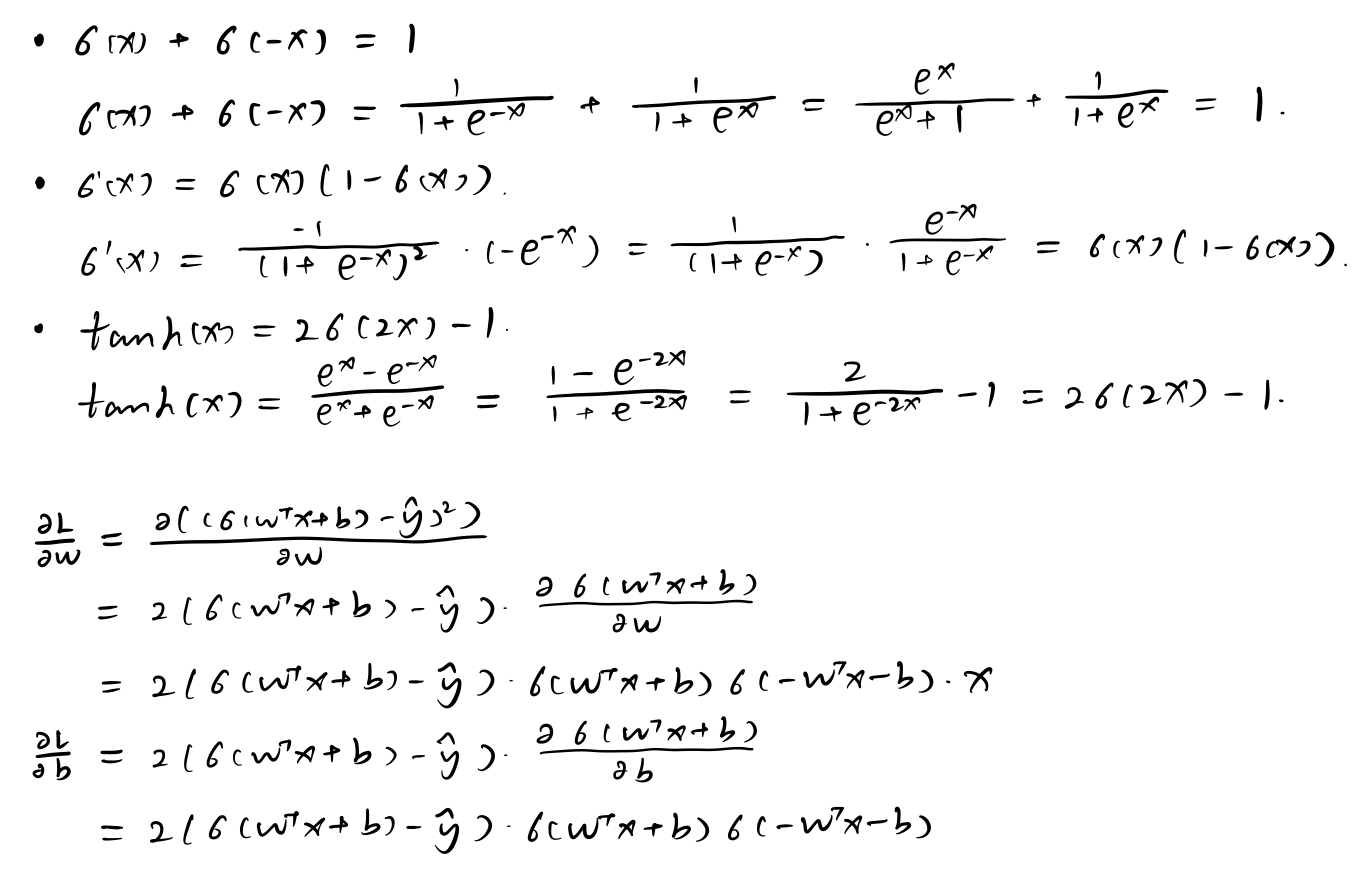 • σ(x) + σ(-x) = 1
σ(x) + σ(-x) = \frac{1}{1+e^{-x}} + \frac{1}{1+e^{x}} = \frac{e^{x}}{e^{x}+1} + \frac{1}{1+e^{x}} = 1.
• σ'(x) = σ(x)(1-σ(x)).
σ'(x) = \frac{-1}{(1+e^{-x})^2} · (-e^{-x}) = \frac{1}{(1+e^{-x})} · \frac{e^{-x}}{1+e^{-x}} = σ(x)(1-σ(x)).
• tanh(x) = 2σ(2x)-1.
tanh(x) = \frac{e^{x}-e^{-x}}{e^{x}+e^{-x}} = \frac{1-e^{-2x}}{1+e^{-2x}} = \frac{2}{1+e^{-2x}} -1 = 2σ(2x)-1.
\frac{∂L}{∂w} = \frac{∂((σ(w^Tx+b)-ŷ)^2)}{∂w}
= 2(σ(w^Tx+b)-ŷ)· \frac{∂σ(w^Tx+b)}{∂w}
= 2(σ(w^Tx+b)-ŷ)·σ(w^Tx+b)σ(-w^Tx-b)·x
\frac{∂L}{∂b} = 2(σ(w^Tx+b)-ŷ)· \frac{∂σ(w^Tx+b)}{∂b}
= 2(σ(w^Tx+b)-ŷ)·σ(w^Tx+b)σ(-w^Tx-b)